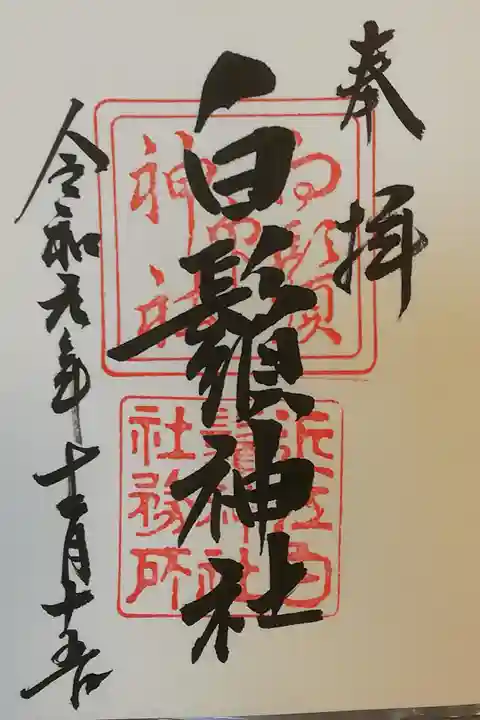 奉拝
白鬚神社
令和元年十一月十五日
白鬚
神社
近江白
鬚神社
社務所